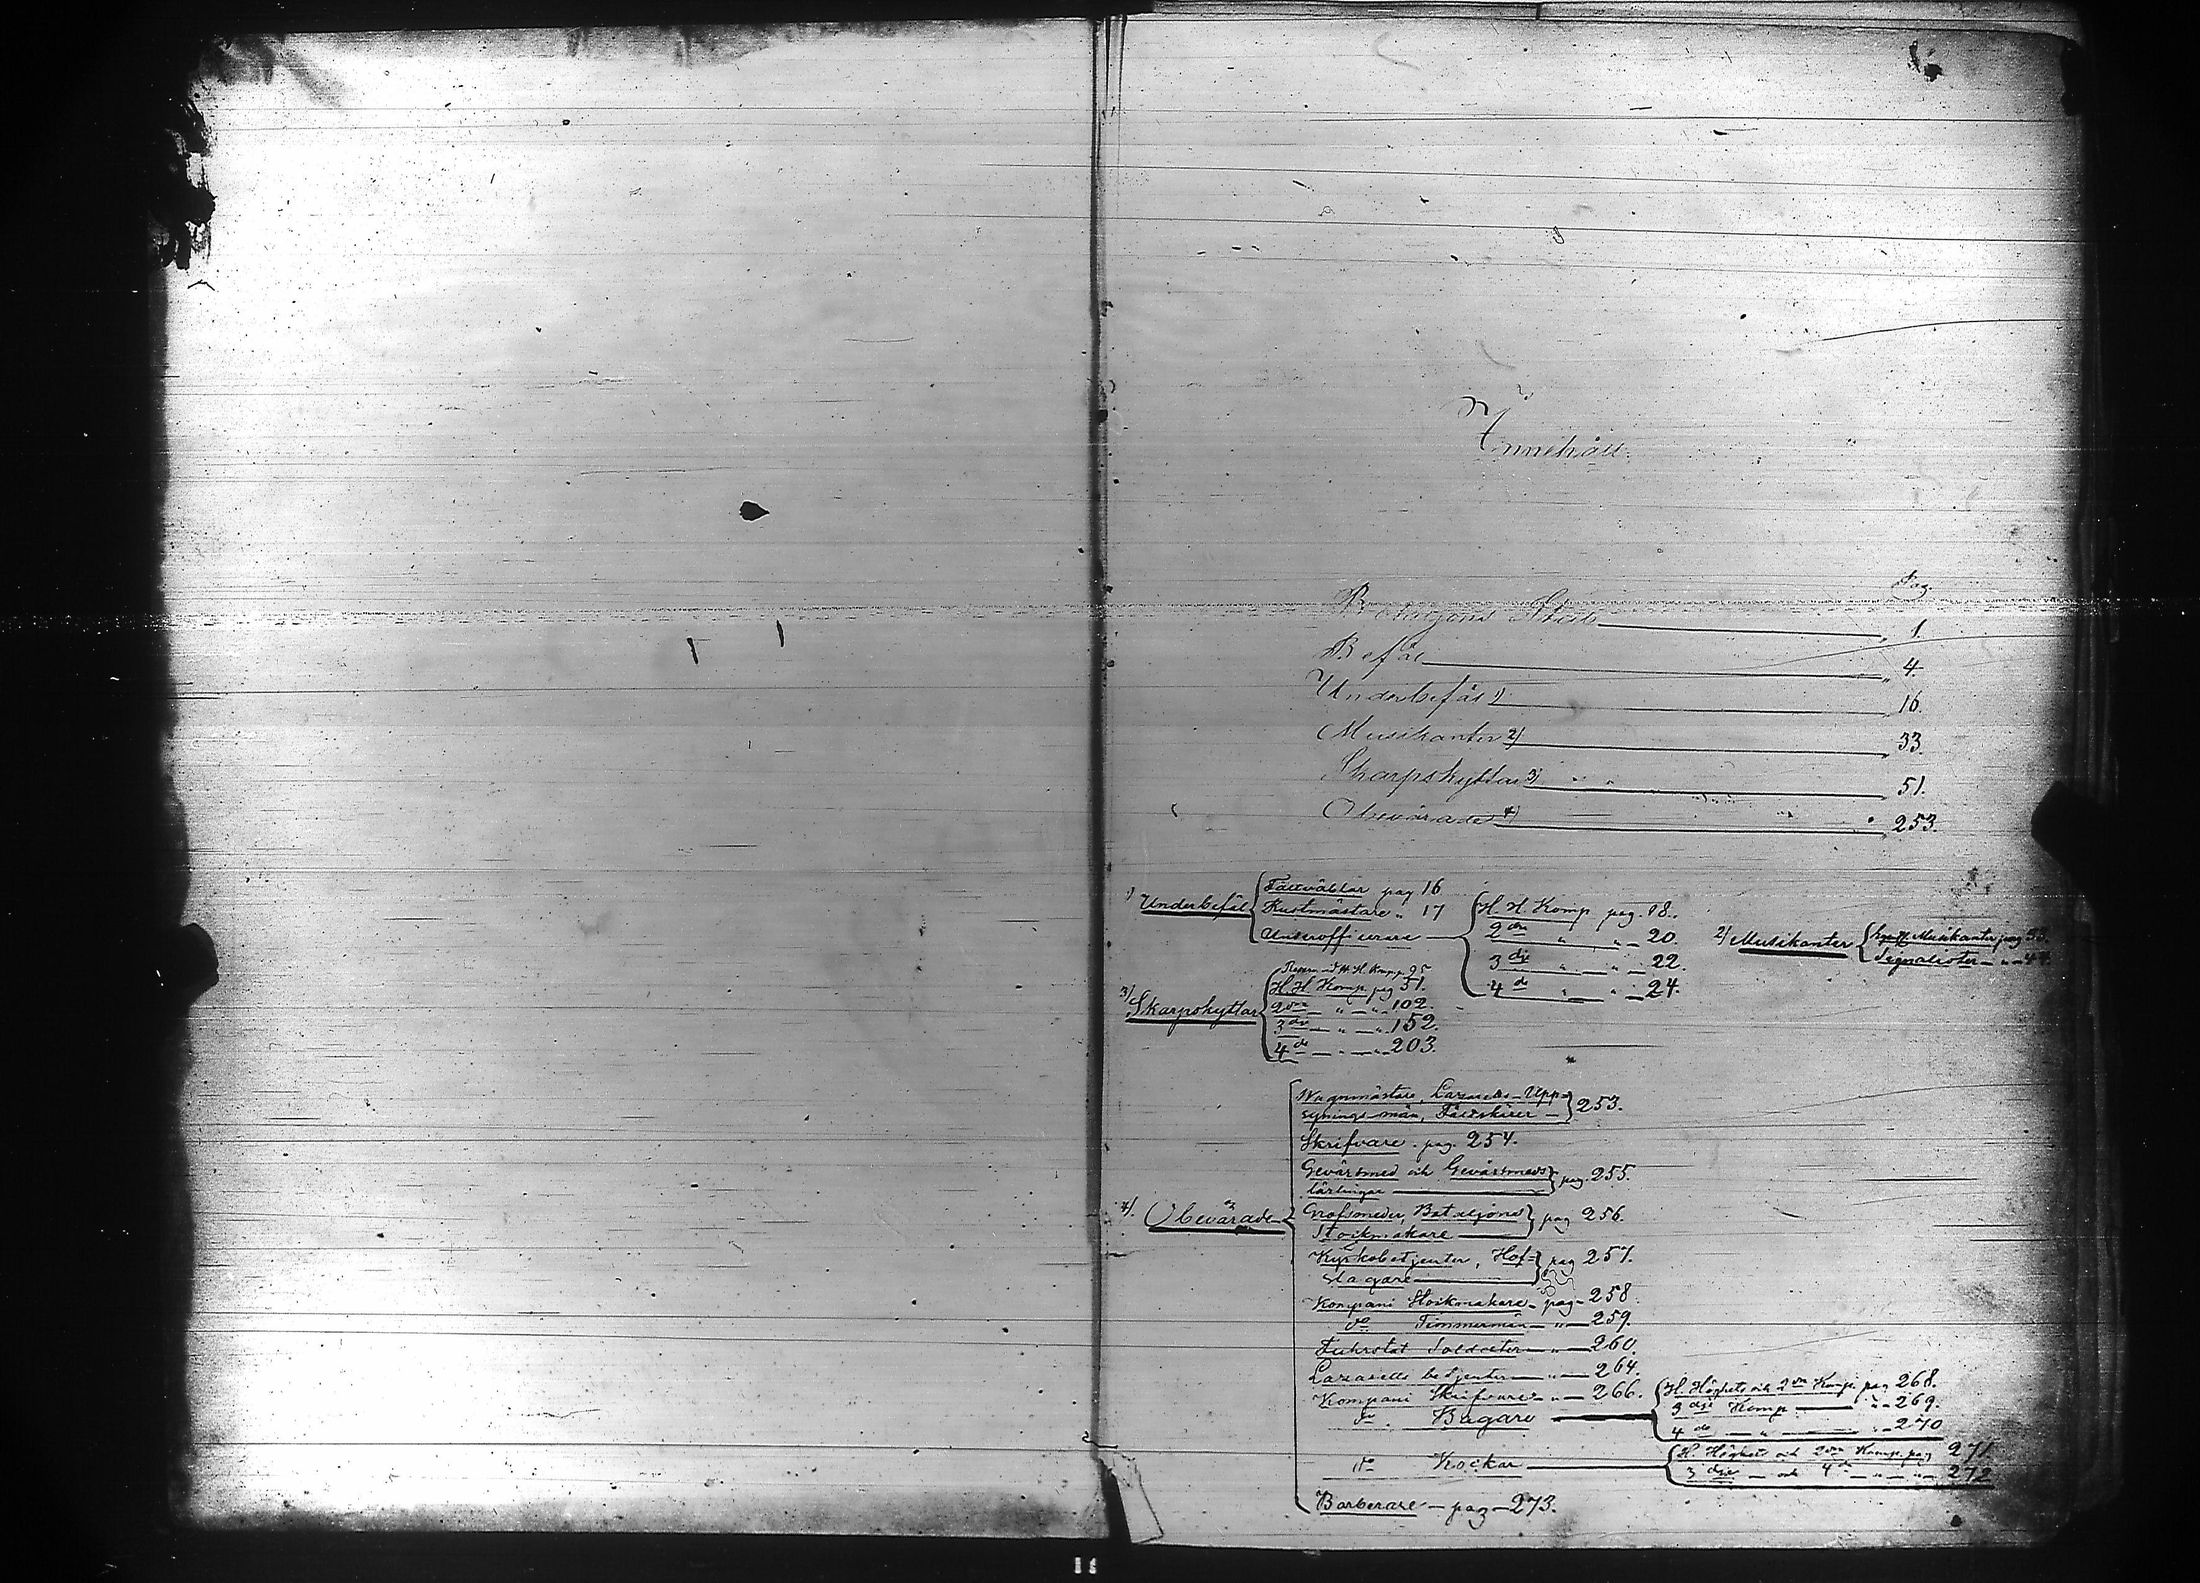 Innehåll.
Pag.
Bataljons Stab 1.
Befäl 4.
Underbefäl 1) 16.
Musikanter 2) 33.
Skarpskyttar 3) 51.
Obevärade 4) 253.
1) Underbefäl
Fältväblar pag 16
Rustmästare " 17
Underofficerare
H. H. Komp pag. 18.
2dra " " 20.
3dje " " 22.
4de " " 24.
2) Musikanter
Musikanter pag 33.
Signalister " 44.
3) Skarpskyttar
H. H. Komp. 95
H. H. Komp. pag 51.
2dra " " 102.
3dje " " 152.
4de " " 203.
4) Obevärade
Wagnmästare, Lazaretts-Upp-
synings-män, Fältskärer 253.
Skrifvare pag. 254.
Gevärsmed och Gevärsmeds
lärlingar pag. 255.
Grofsmeder, Bataljons
Stockmakare pag 256.
Kyrkobetjenter, Hof-
slagare pag 257.
Kompani Stockmakare pag 258.
do Timmermän " 259.
Fuhrstat Soldater " 260.
Lazaretts betjenter " 264.
Kompani Skrifvare " 266.
do Bagare
H. Höghets och 2dra Komp. pag 268.
3dje Komp " 269.
4de " " 270
do Kockar
H. Höghets och 2dra Komp. pag 271.
3dje och 4de " " 272
Barberare pag 273.